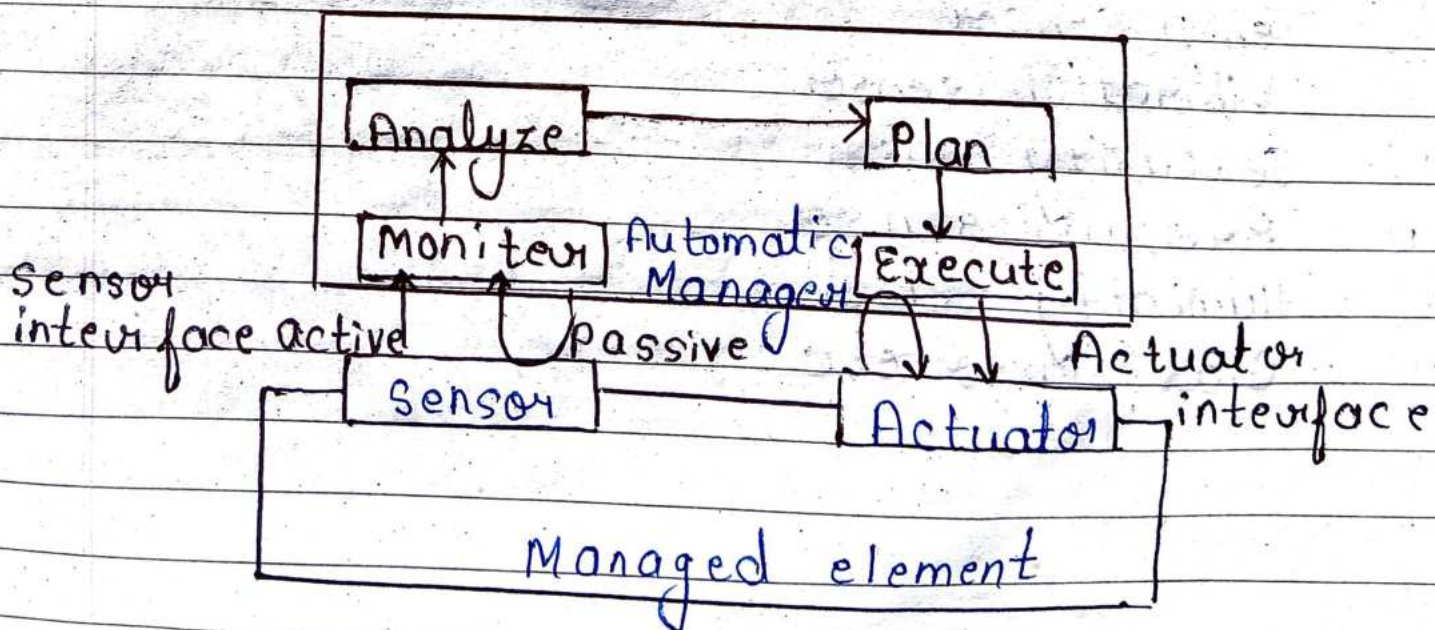 Analyze
Plan
Moniter
Automatic
Manager
Execute
Sensor
interface active
Passive
Actuator
interface
Sensor
Actuator
Managed element